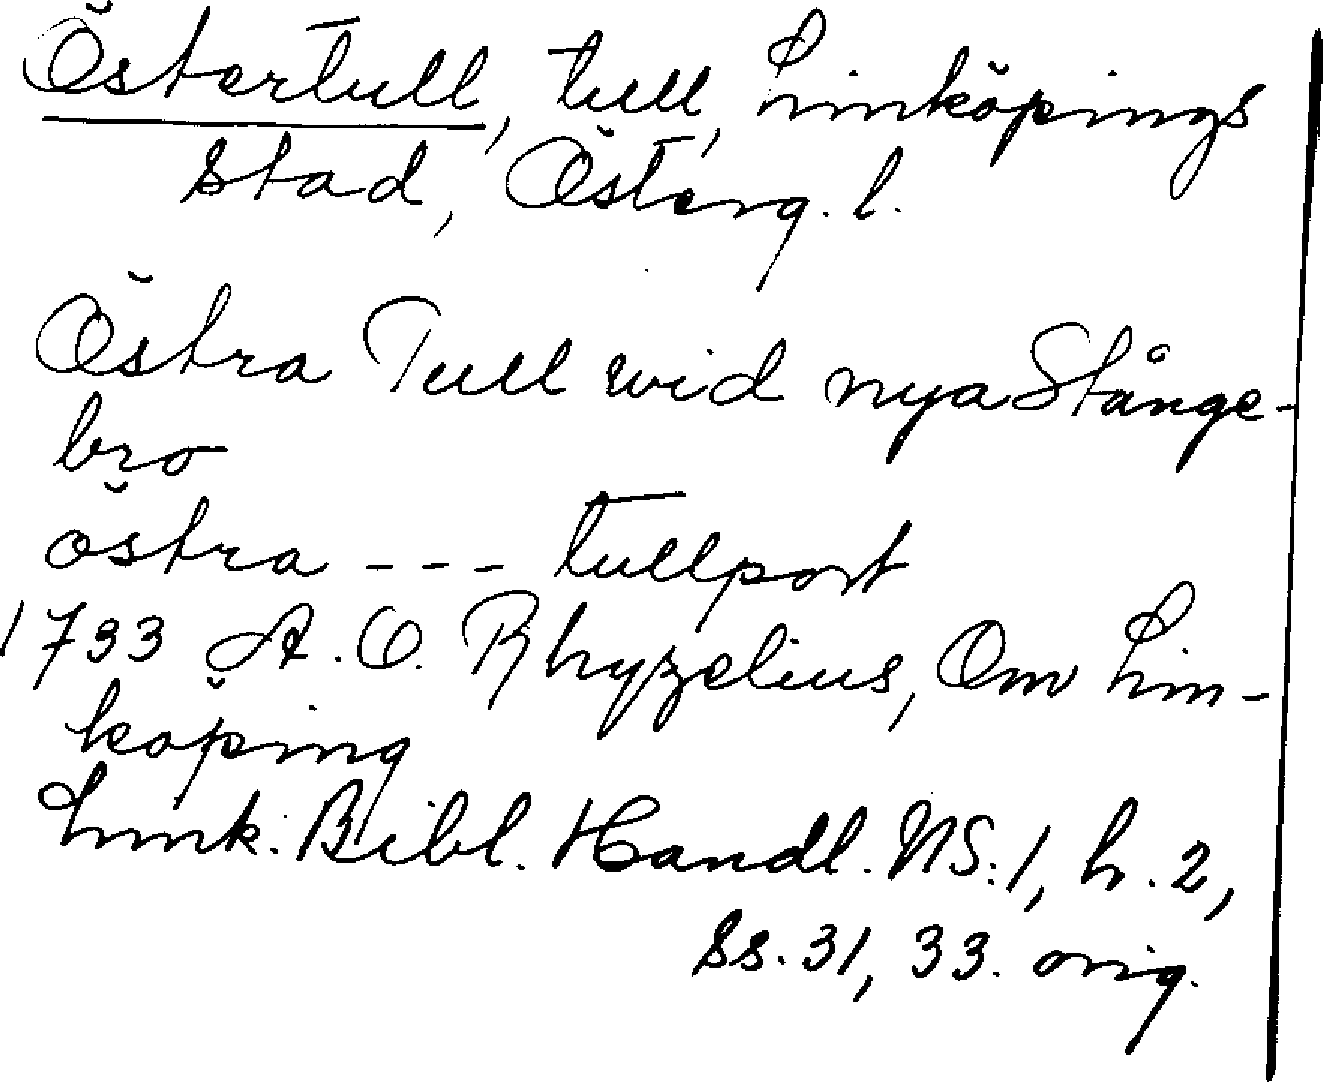 Östertull, tull, Linköpings
stad, Österg. l.
Östra Tull wid nya Stånge-
bro
östra --- tullport
1733 A. O. Rhyzelius, Om Lin-
köping
Link. Bibl. Handl. NS:1, h. 2,
ss. 31, 33. orig.